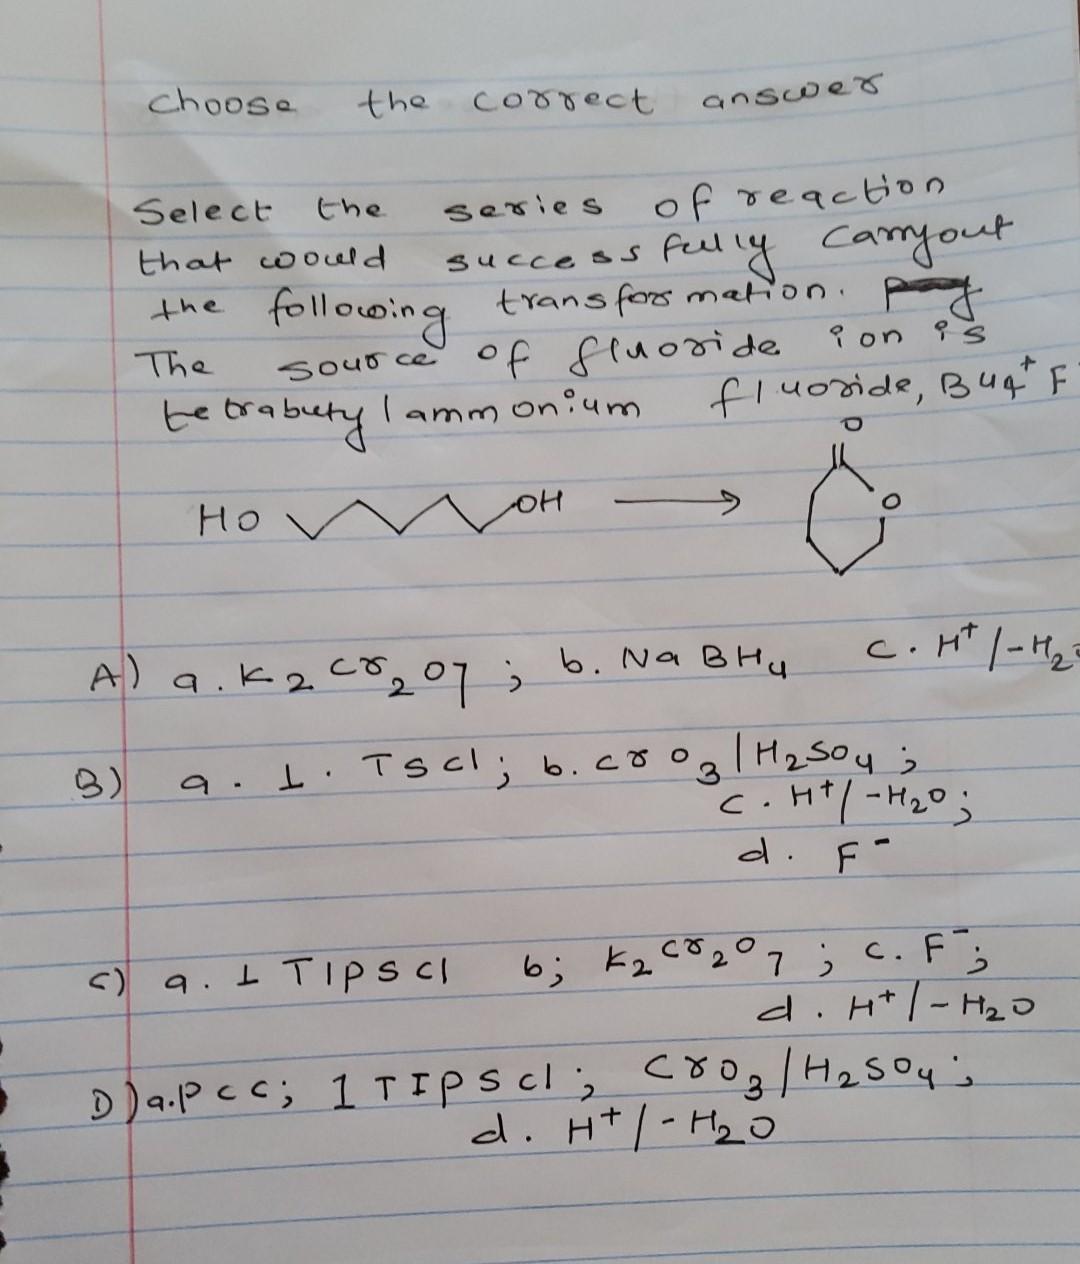 choose the correct answer
Select the series of reaction
that would successfully carryout
the following transformation.
The source of fluoride ion is
tetrabutylammonium fluoride, Bu4+ F-
O
HO OH → O
A) a. K2Cr2O7 ; b. NaBH4 c. H+/-H2O
B) a. 1. TSCl; b. CrO3/H2SO4 ;
c. H+/-H2O;
d. F-
C) a. 1 TIPSCl b; K2Cr2O7 ; c. F-;
d. H+/-H2O
D) a. PCC; 1 TIPSCl; CrO3/H2SO4;
d. H+/-H2O